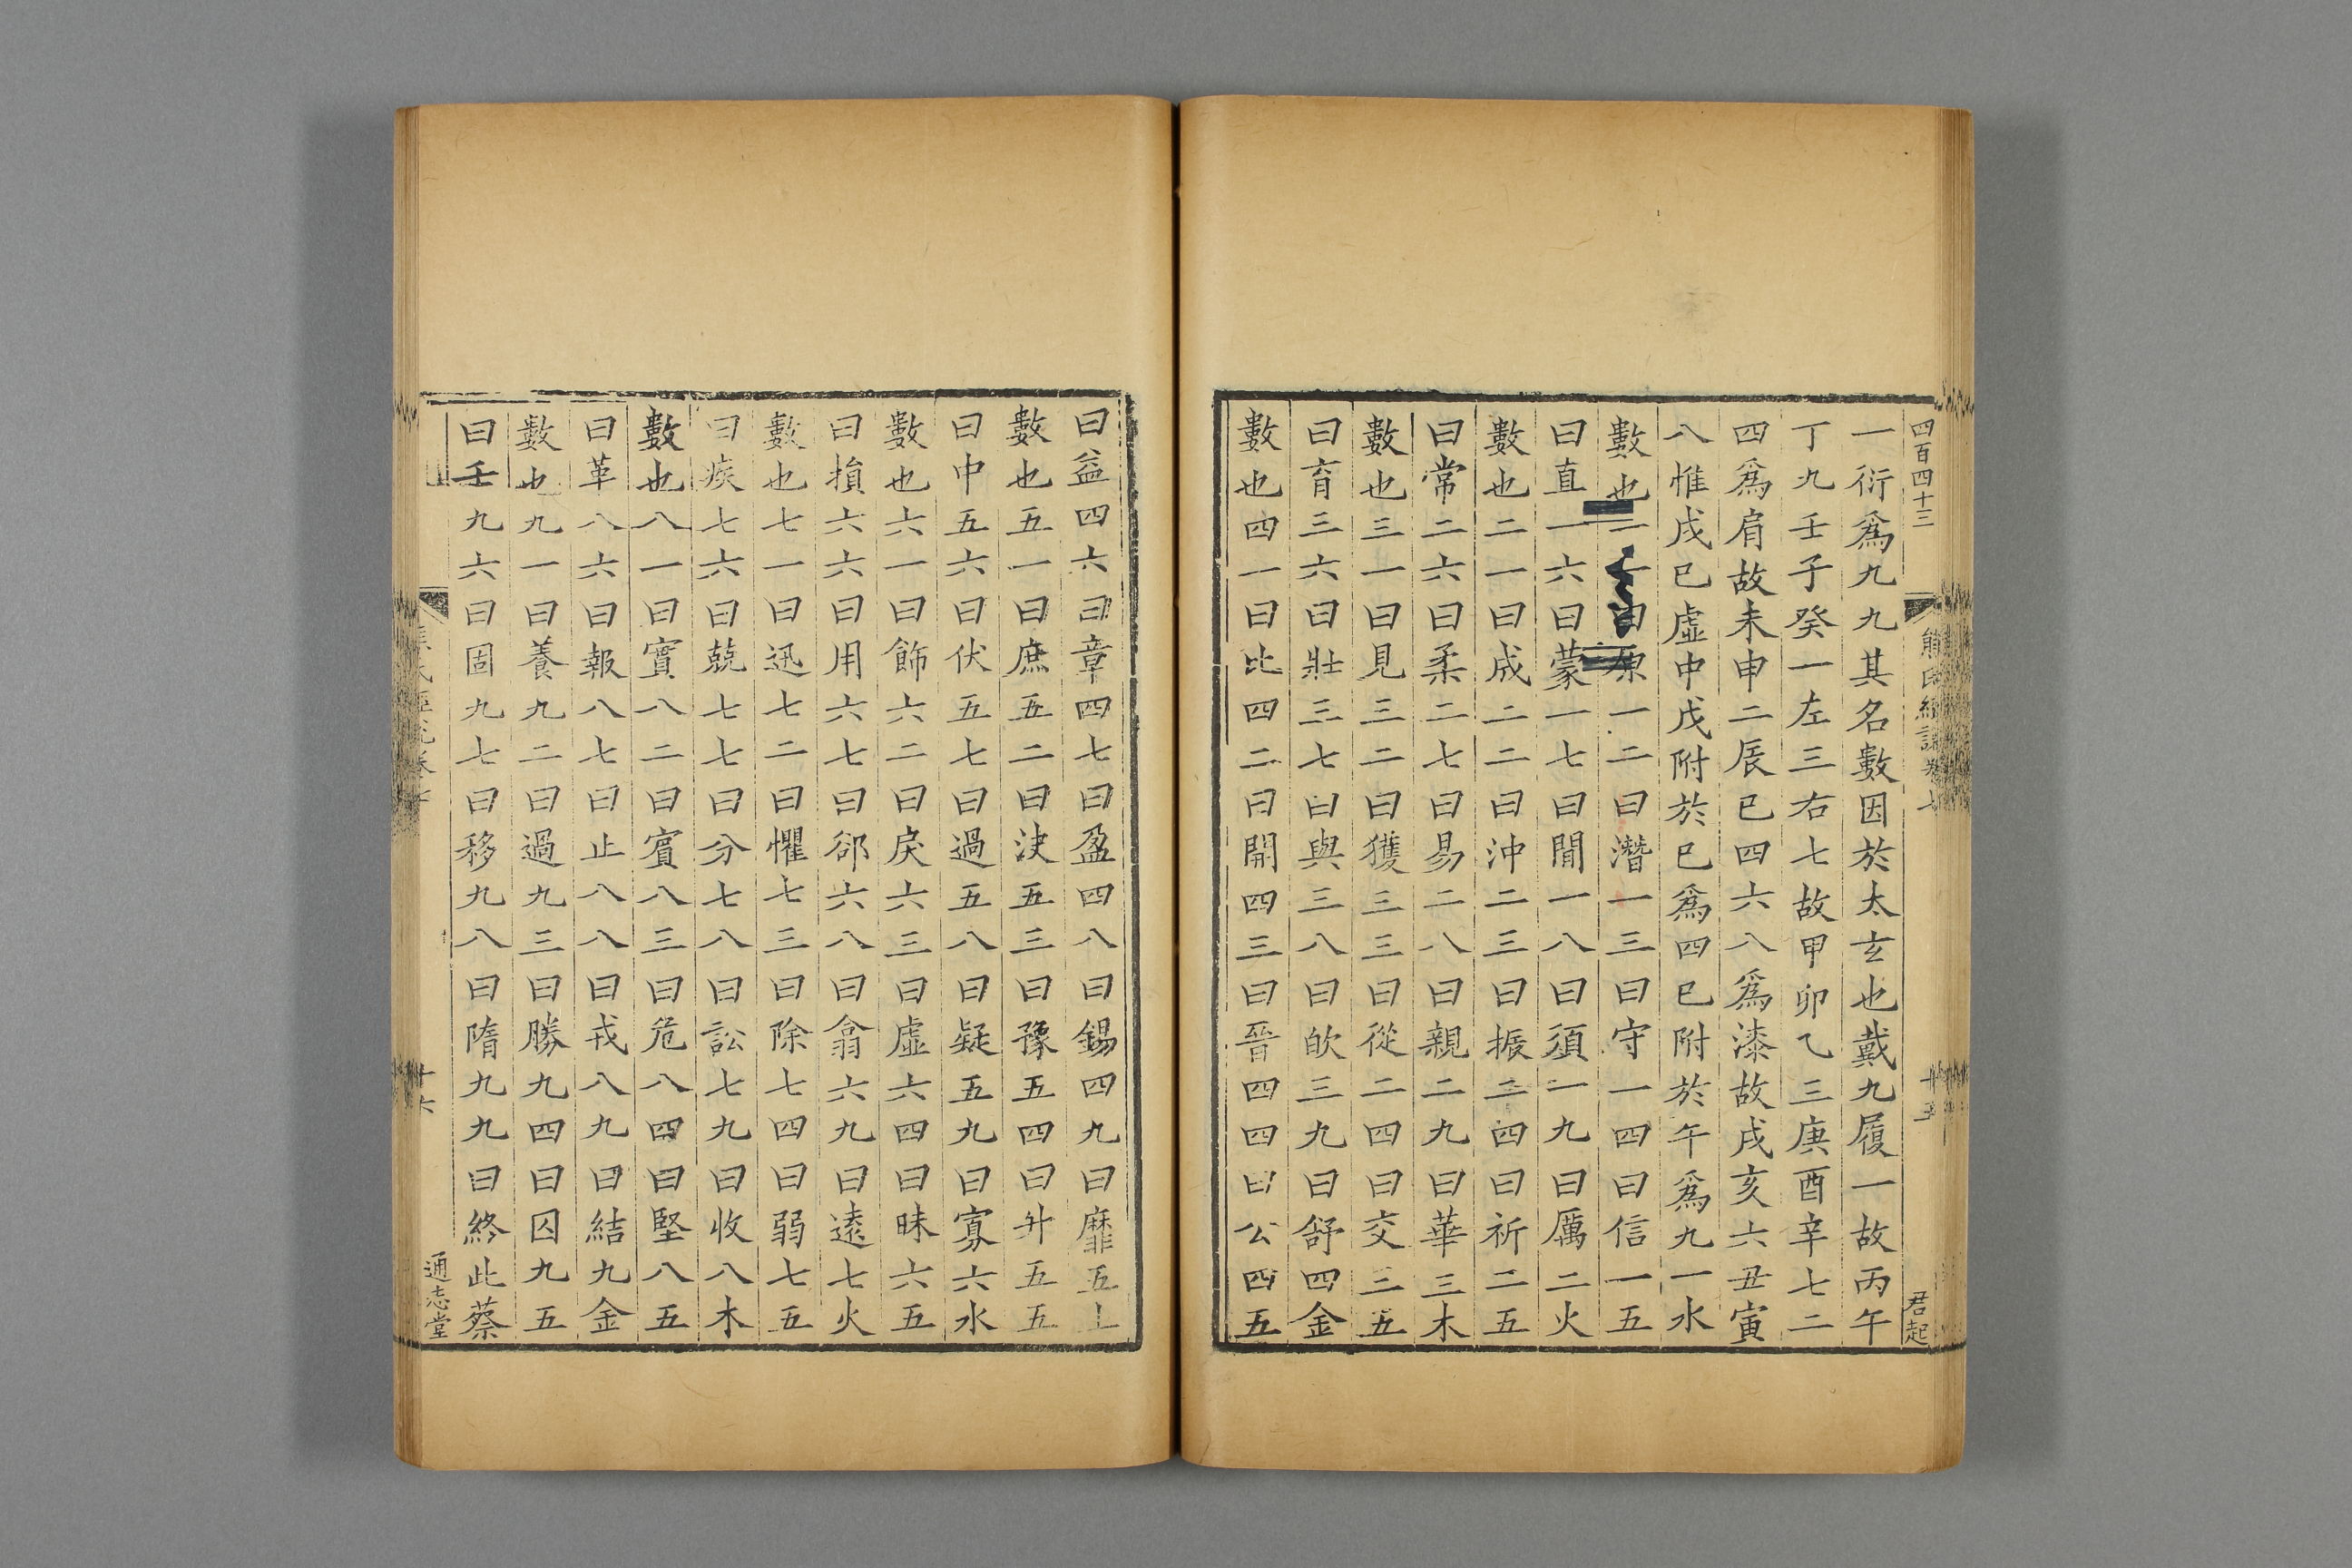 四百四十三
君起
一衍爲九九其名數因於太玄也戴九履一故丙午
丁九壬子癸一左三右七故甲卯乙三庚酉辛七二
四爲肩故未申二辰巳四六八爲漆故戌亥六丑寅
八惟戊巳虛中戊附於巳爲四巳附於午爲九一水
數也一一曰原一二曰潛一三曰守一四曰信一五
曰直一六曰蒙一七曰閒一八曰須一九曰厲二火
數也二一曰成二二曰沖二三曰振二四曰祈二五
曰常二六曰柔二七曰易二八曰親二九曰華三木
數也三一曰見三二曰獲三三曰從二四曰交三五
曰育三六曰壯三七曰與三八曰欥三九曰舒四金
數也四一曰比四二曰開四三曰晉四四曰公四五
曰益四六曰章四七曰盈四八曰錫四九曰靡五土
數也五一曰庶五二曰決五三曰豫五四曰升五五
曰中五六曰伏五七曰過五八曰疑五九曰寡六水
數也六一曰飾六二曰戾六三曰虛六四曰昧六五
曰損六六曰用六七曰郤六八曰翕六九曰遠七火
數也七一曰迅七二曰懼七三曰除七四曰弱七五
曰疾七六曰兢七七曰分七八曰訟七九曰收八木
數也八一曰實八二曰賓八三曰危八四曰堅八五
曰革八六曰報八七曰止八八曰戎八九曰結九金
數也九一曰養九二曰過九三曰勝九四曰囚九五
曰壬九六曰固九七曰移九八曰隋九九曰終此蔡
通志堂